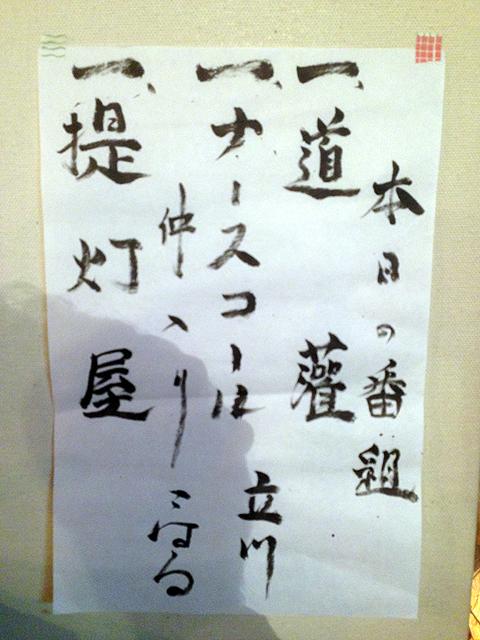 本日の番組
一、道灌
一、ナースコール 立川
仲入り こはる
一、提灯屋